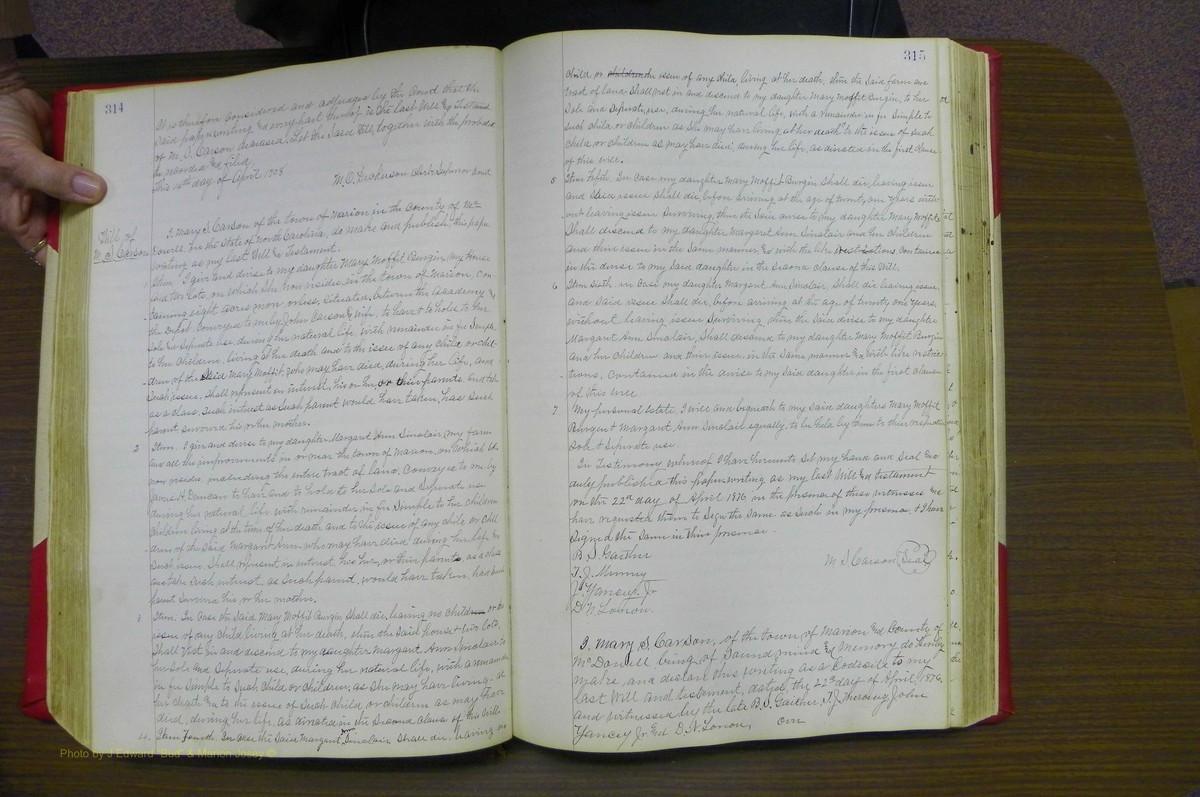 314
It is therefore considered and adjudged by the Court that the
said paper writing & every part thereof is the last Will & Testament
of M. S. Carson deceased, Let the Said Will, together with the probate
be recorded & filed.
This 10th day of April 1908
Clerk Superior Court
Will of
M. S. Carson
I Mary S Carson of the town of Marion in the County of Mc-
Dowell in the State of North Carolina, do make and publish, this paper
writing as my last Will & Testament.
Item. I give and devise to my daughter Mary Moffit Burgin my House
and two Lots, on which She now resides, in the town of Marion, Con-
taining eight acres more or less, Situated, between the Academy &
the Depot Conveyed to me by John Carson & wife, to have & to hold to her
Sole & Seperate use during her natural life with remainder in fee Simple
to her Children, living at her death and to the issue of any Child or Chil-
dren of the Said Mary Moffit, who may have died, during her life, And
Such issue, Shall represent in interest, his or her, or their parents And take
as a class, Such interest as Such parent would have taken, had Such
parent survived his or her mother.
2 Item. I give and devise to my daughter Margaret Ann Sinclair, my farm
and all the improvements in or near the town of Marion, on which She
now resides, including the entire tract of land, Conveyed to me by
James H. Duncan to have and to hold to her Sole and Seperate use
during her natural life with remainder in fee Simple to her Children
Children living at the time of her death and to the issue of any child or Chil
dren of the Said Margaret Ann who may have died during her life &
Such issue, Shall represent in interest his her, or their parents, as a class
and take Such interest, as Such parent, would have taken, had Such
parent survived his or her mother.
Item. In Case the Said Mary Moffit Burgin Shall die, leaving no Children or the
issue of any Child living at her death, then the Said house & two lots,
Shall Vest in and descend to my daughter Margaret Ann Sinclair to
her Sole and Seperate use, during her natural life, with a remainder
in fee Simple to Such Child or Children, as She may have living at
her death & to the issue of Such Child or Children as may have
died, during her life, as directed in the Second Clause of this Will
4. Item Fourth. In case the Said Margaret Ann Sinclair Shall die, leaving no
315
Child or children the issue of any child living at her death, then the Said farm and
tract of land Shall Vest in and descend to my daughter Mary Moffit Burgin, to her
Sole and Seperate, use, during her natural life, with a remainder in fee Simple to
Such Child or Children as She may have living at her death & to the issue of Such
Child or Children as may have died, during her life, as directed in the first Clause
of this Will.
5 Item Fifth. In Case my daughter Mary Moffit Burgin Shall die, leaving issue
and Said issue Shall die, before arriving at the age of twenty, one years with-
out leaving issue Surviving, then the Said devise to my daughter Mary Moffit
Shall descend to my daughter Margaret Ann Sinclair and her Children
and their issue in the Same manner, & with the like restrictions Contained
in the devise to my Said daughter in the Second Clause of this Will.
6 Item Sixth in Case my daughter Margaret Ann Sinclair, Shall die leaving issue
and Said issue Shall die, before arriving at the age of twenty, one years,
without leaving issue Surviving, then the Said devise to my daughter
Margaret Ann Sinclair, Shall descend to my daughter Mary Moffit Burgin
and her Children and their issue, in the Same manner & with like restric-
tions, Contained in the devise to my Said daughter in the first Clause
of this Will
7 My personal Estate, I Will and bequeath to my Said daughters Mary Moffit
Burgin & Margaret Ann Sinclair equally, to be held by them to their seperate
Sole & Seperate use.
In Testimony whereof I have hereunto Set my hand and Seal and
duly published this paper writing as my last Will & Testament
on the 22nd day of April 1876 in the presence of these witnesses &
have requested them to Sign the Same as Such in my presence, & I have
Signed the Same in their presence.
M S Carson (Seal)
B. S. Gaither
T. J. Murray
J. Yancey Jr
D. N. Lonon.
I, Mary S Carson, of the town of Marion and County of
McDowell being of Sound mind & Memory do hereby
make, and declare this writing as a Codicile to my
last Will and testament, dated the 22nd day of April, 1876.
and witnessed by the late B. S. Gaither, T. J. Murray John
Yancey Jr. and D. N. Lonon, over
Photo by J Edward "Bud" & Marion Josey ©